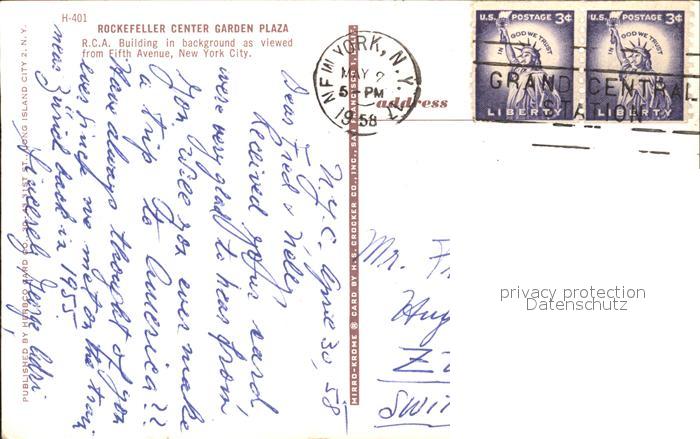 H-401
ROCKEFELLER CENTER GARDEN PLAZA
R.C.A. Building in background as viewed
from Fifth Avenue, New York City.
N.Y.C. April 30, 58
Dear Fred & Nelly
Received your card
were very glad to hear from
you. Will you ever make
a trip to America??
Have always thought of you
ever since we met on the train
near Zürich back in 1955
Sincerely, George
PUBLISHED BY LONG ISLAND CITY 2, N. Y.
MIRRO-KROME ® CARD BY H. S. CROCKER CO., INC., SAN FRANCISCO 1,
address
NEW YORK, N.Y.
MAY 2
5 PM
1958
U.S. POSTAGE 3¢
IN GOD WE TRUST
LIBERTY
U.S. POSTAGE 3¢
IN GOD WE TRUST
LIBERTY
GRAND CENTRAL
STATION
Mr. F
Hug
Zü
Swi
privacy protection
Datenschutz